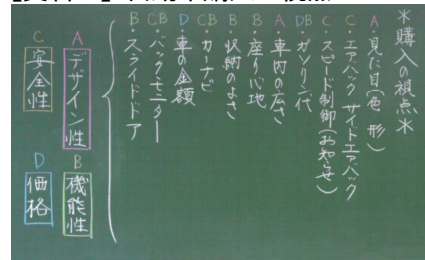 ＊購入の視点＊
A・見た目(色 形)
C・エアバック サイドエアバック
C・スピード制御(お知らせ)
DB・ガソリン代
A・車内の広さ
B・座り心地
B・収納のよさ
CB・カーナビ
D・車の金額
CB・バックモニター
B・スライドドア
A デザイン性
B 機能性
C 安全性
D 価格